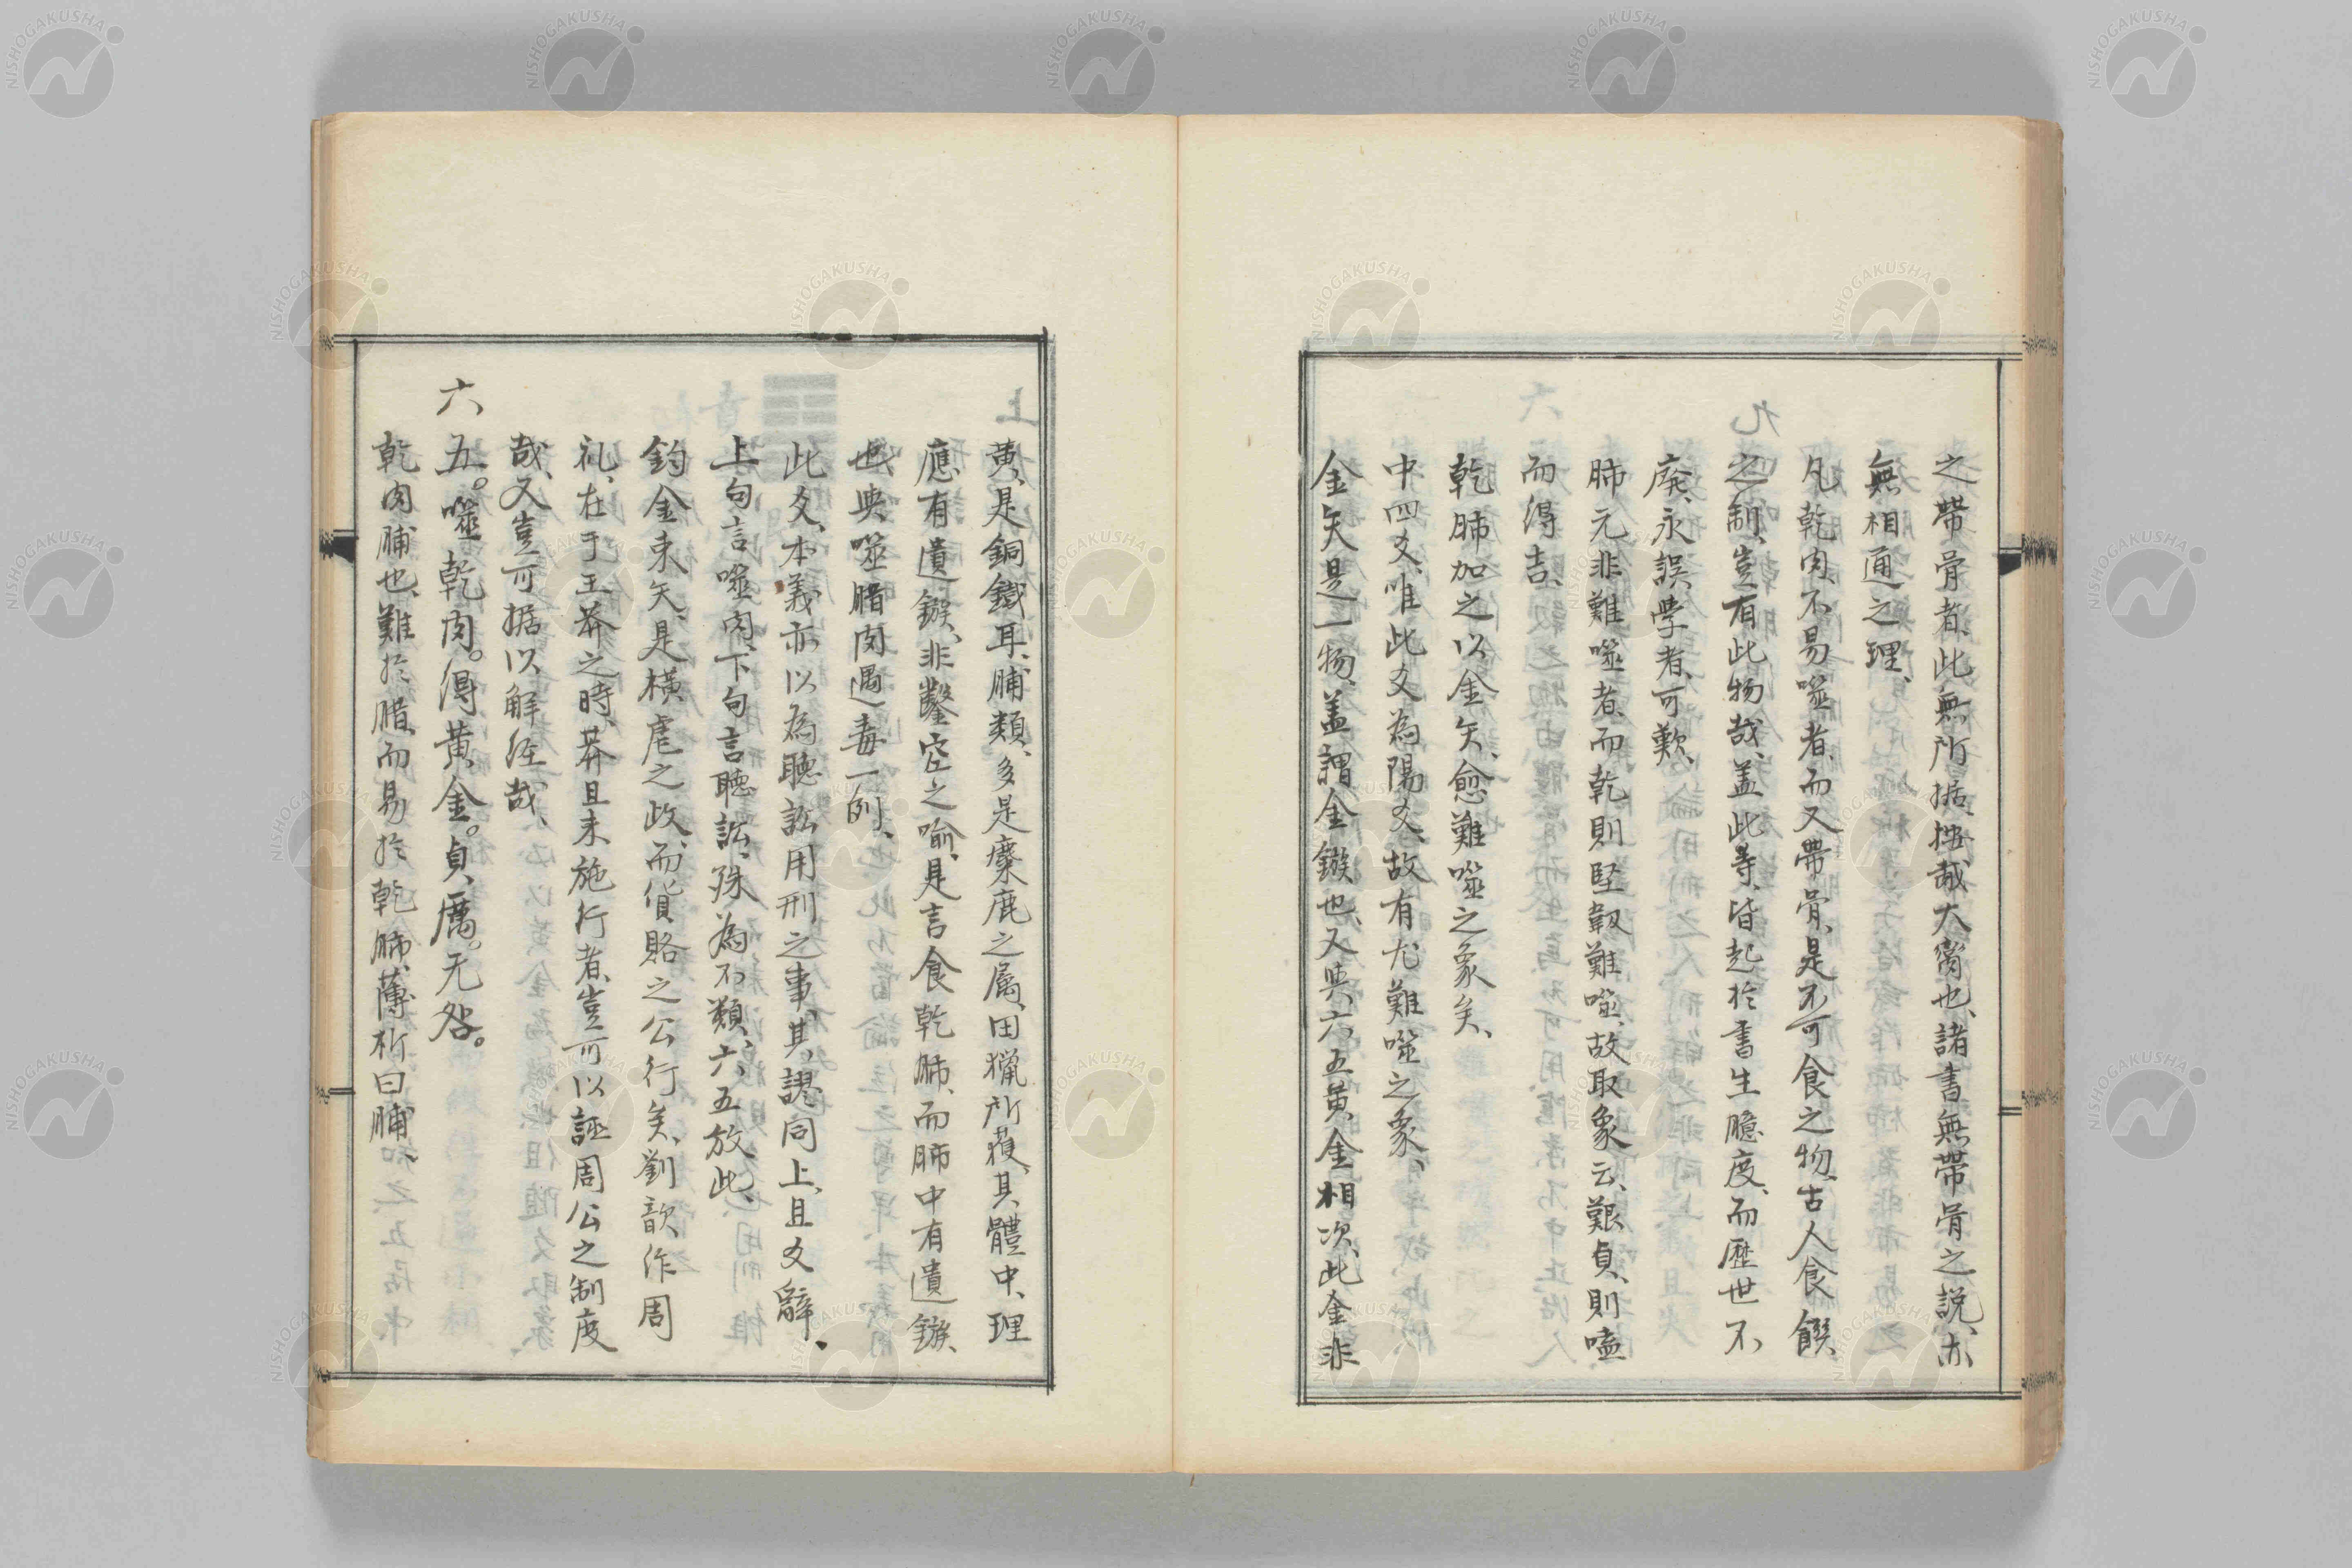 之帶骨者、此無所据、按哉大臠也、諸書無帶骨之説、亦
無相通之理、
凡乾肉、不易噬者、而又帶骨、是不可食之物、古人食饌
之制、豈有此物哉、蓋此等、皆起於書生臆度、而歴世不
廃、永誤学者、可歎、
胏元非難噬者、而乾則堅韌難噬、故取象云、艱貞、則嗑
而得吉、
乾胏加之以金矢、愈難噬之象矣、
中四爻、唯此爻為陽爻、故有尤難噬之象、
金矢是一物、盖謂金鏃也、又與六五黄金相次、此金非
黄、是銅鐵耳、脯類、多是麋鹿之属、田猟所獲、其體中、理
應有遺鏃、非鑿空之喻、是言食乾胏、而胏中有遺鏃、
也、與噬腊肉遇毒一例、
此爻、本義亦以為聴訟用刑之事、其謬同上、且爻辭、
上句言噬肉、下句言聴訟、殊為不類、六五放此、
鈞金束矢、是横虐之政、而貨賂之公行矣、劉歆、作周
礼、在于王莽之時、莽且未施行者、豈可以誣周公之制度
哉、又豈可据以解經哉、
六五。噬乾肉。得黄金。貞厲。无咎。
乾肉脯也、難於腊、而易於乾胏、薄析曰脯、
NISHOGAKUSHA